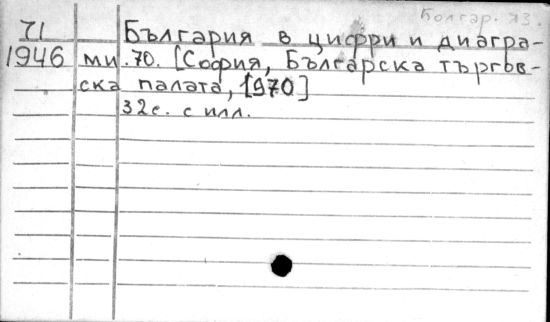 Болгар. яз.
71 България в цифри и диагра-
1946 ми. 70. [София, Българска търгов-
ска палата, [970]
32с. с илл.